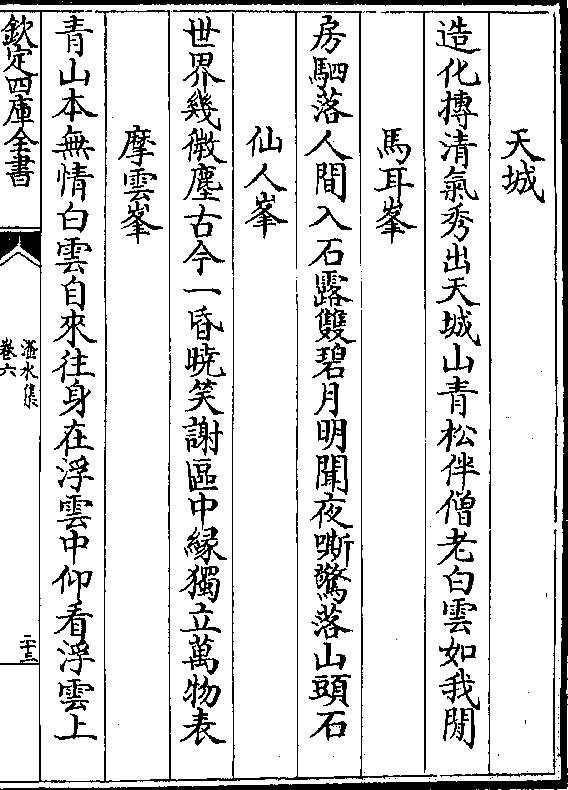 天城
造化摶清氣秀出天城山青松伴僧老白雲如我閒
馬耳峯
房駟落人間入石露雙碧月明聞夜嘶驚落山頭石
仙人峯
世界幾微塵古今一昏曉笑謝區中縁獨立萬物表
摩雲峯
青山本無情白雲自來往身在浮雲中仰看浮雲上
欽定四庫全書
滏水集
卷六
二十三